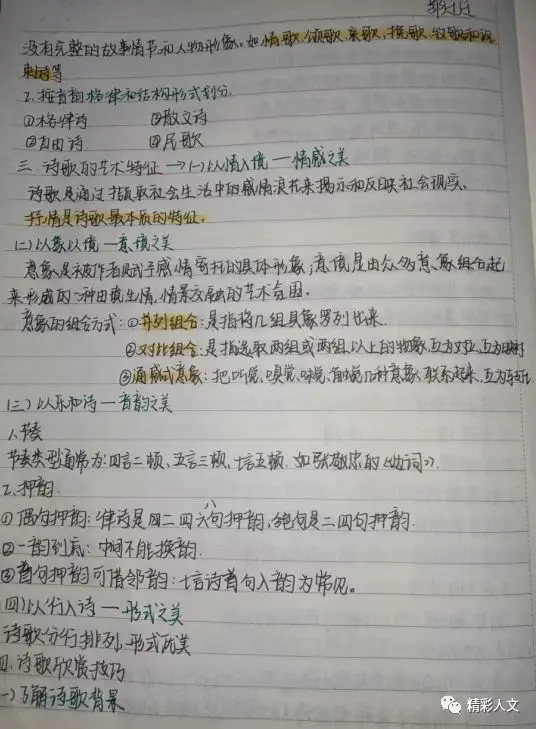 没有完整的故事情节和人物形象。如情歌、颂歌、哀歌、挽歌、牧歌和讽
刺诗等
2.按音韵格律和结构形式划分.
①格律诗 ③散文诗
②自由诗 ④民歌
三.诗歌的艺术特征→(一)以情入境—情感之美
诗歌是通过撷取社会生活中的感情浪花来揭示和反映社会现实。
抒情是诗歌最本质的特征。
(二)以象以境—意境之美
意象是被作者赋予感情寄托的具体形象;意境是由众多意象组合起
来形成的一种由境生情,情景交融的艺术氛围。
意象的组合方式:①并列组合:是指将几组具象罗列出来.
②对比组合:是指选取两组或两组以上的物象,互为对应,互为映衬
③通感式意象:把听觉、嗅觉、味觉、触觉几种意象联系起来,互为
(三)以乐和诗—音韵之美
1.节奏
节奏类型通常为:四言二顿、五言三顿、七言五顿.如张敬忠的《边词》.
2.押韵.
①偶句押韵:律诗是四二四六八句押韵,绝句是二四句押韵.
②一韵到底:中间不能换韵.
③首句押韵可借邻韵:七言诗首句入韵为常见。
(四)以行入诗—形式之美
诗歌分行排列,形式优美
四.诗歌欣赏技巧
(一)了解诗歌背景
精彩人文